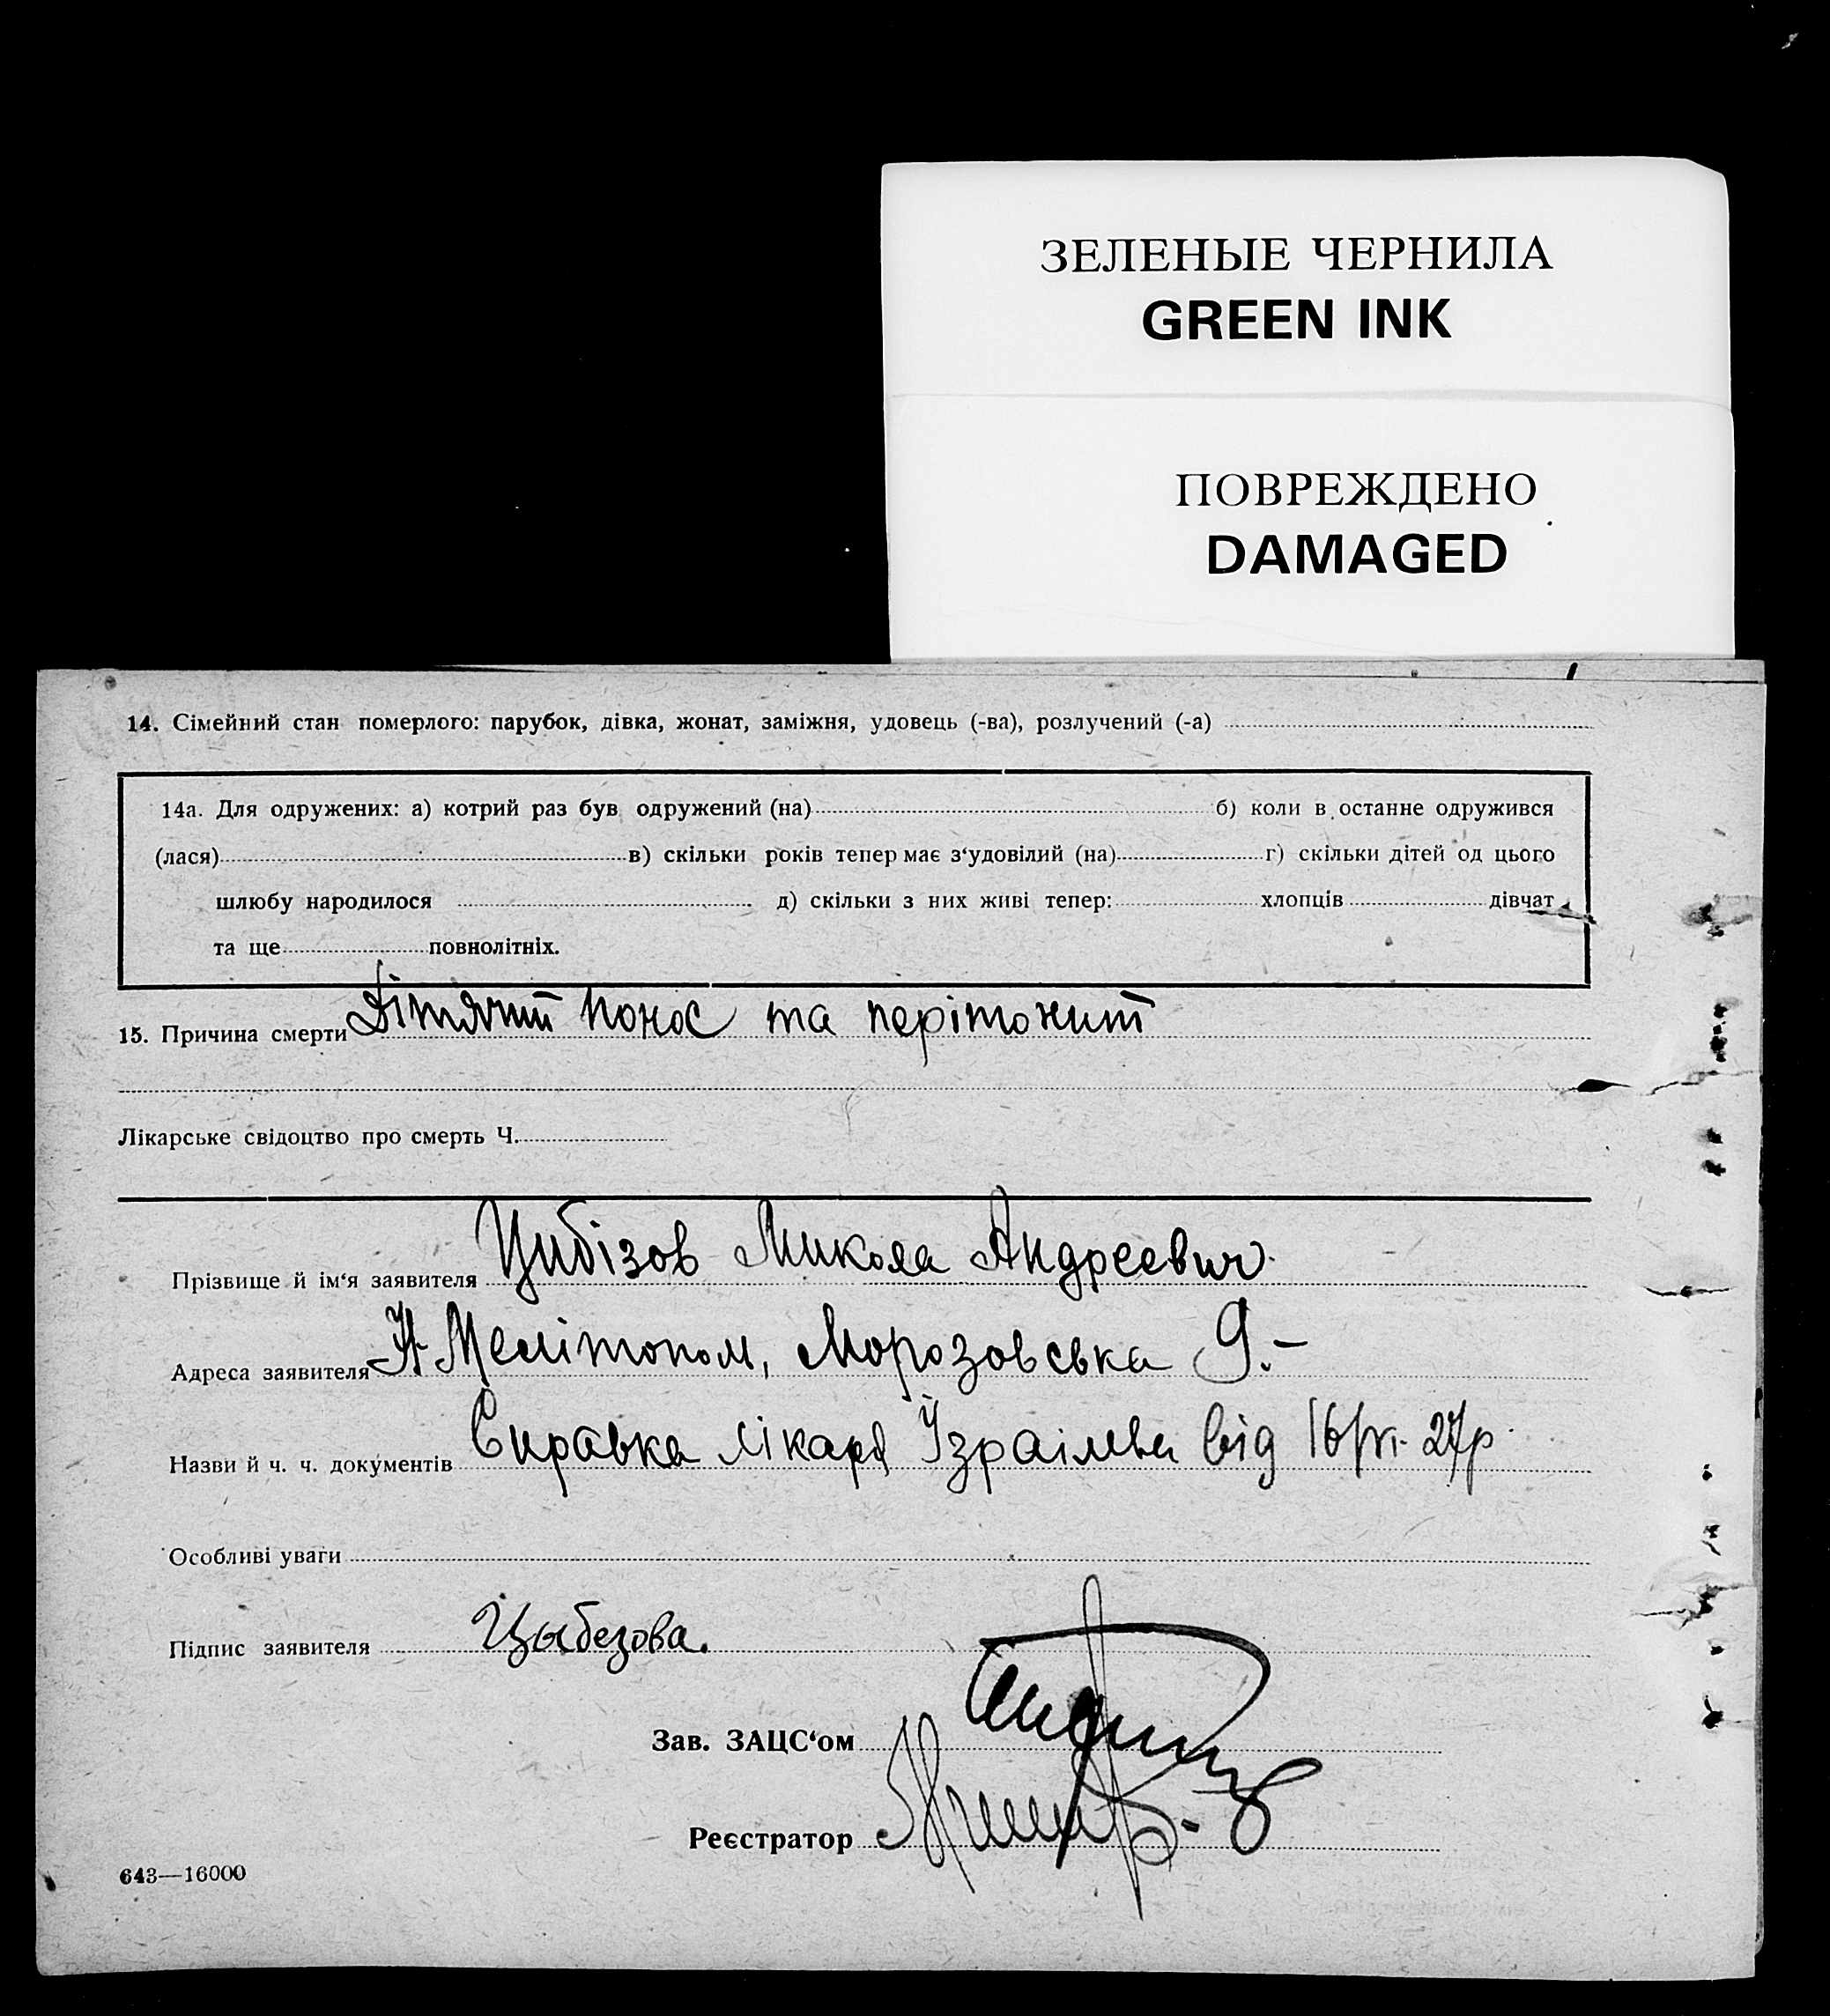 ЗЕЛЕНЫЕ ЧЕРНИЛА
GREEN INK
ПОВРЕЖДЕНО
DAMAGED
14. Сімейний стан померлого: парубок, дівка, жонат, заміжня, удовець (-ва), розлучений (-а)
14а. Для одружених: а) котрий раз був одружений (на) б) коли в останне одружився
(лася) в) скільки років тепер має з‘удовілий (на) г) скільки дітей од цього
шлюбу народилося д) скільки з них живі тепер: хлопців дівчат
та ще повнолітніх.
15. Причина смерти Дітячий понос та перітоніт
Лікарське свідоцтво про смерть Ч.
Прізвище й ім‘я заявителя Цибізов Микола Андреевич.
Адреса заявителя Н Мелітопол, Морозовська 9.-
Назви й ч. ч. документів Справка лікаря від 27р
Особливі уваги
Підпис заявителя Цыбезова.
Зав. ЗАЦС‘ом
Реєстратор
643—16000